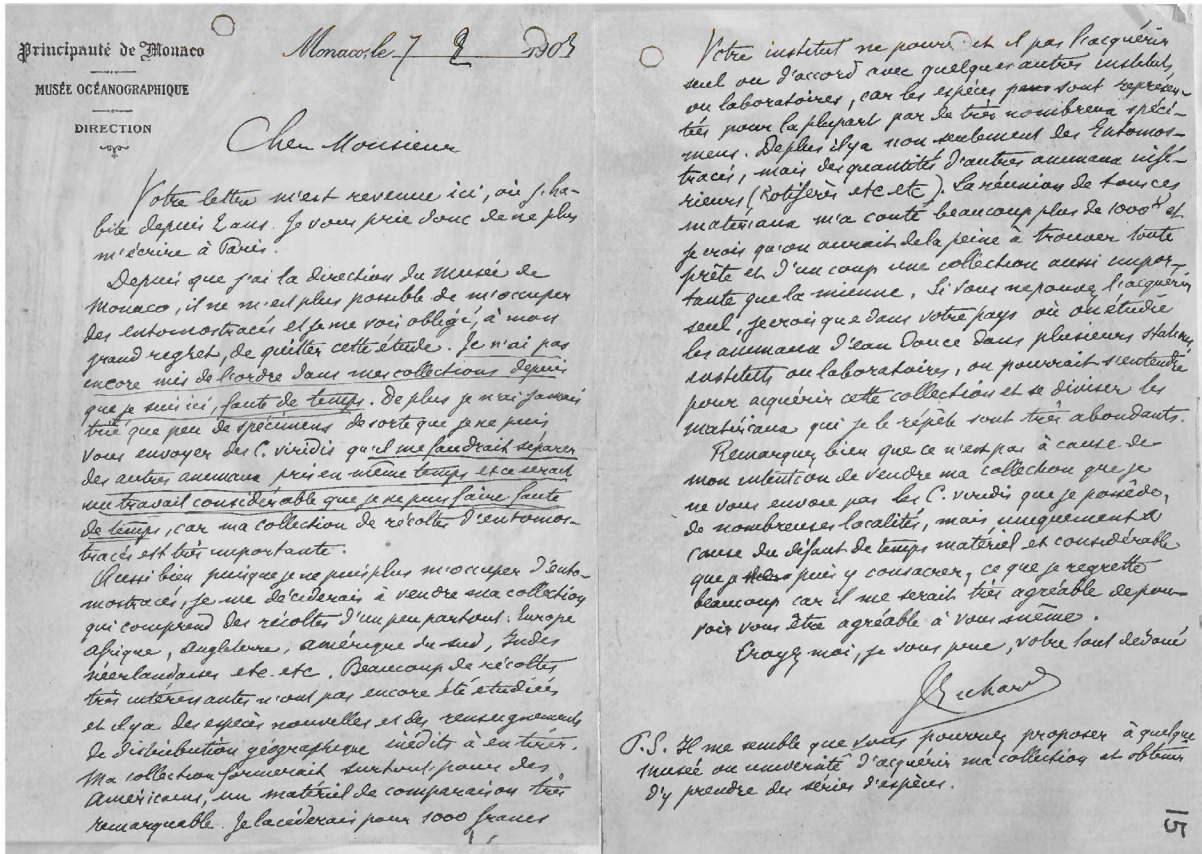 Principauté de Monaco
MUSÉE OCÉANOGRAPHIQUE
DIRECTION
Monaco, le 7 2 1903
Cher Monsieur
Votre lettre m'est revenue ici, où j'ha-
bite depuis 2 ans. Je vous prie donc de ne plus
m'écrire à Paris.
Depuis que j'ai la direction du Musée de
Monaco, il ne m'est plus possible de m'occuper
des entomostracés et je me vois obligé, à mon
grand regret, de quitter cette étude. Je n'ai pas
encore mis de l'ordre dans mes collections depuis
que je suis ici, faute de temps. De plus je n'ai jamais
trié que peu de spécimens de sorte que je ne puis
vous envoyer des C. viridis qu'il me faudrait séparer
des autres animaux pris en même temps et ce serait
un travail considérable que je ne puis faire faute
de temps, car ma collection de récoltes d'entomos-
tracés est très importante.
Aussi bien puisque je ne puis plus m'occuper d'ento-
mostracés, je me déciderais à vendre ma collection
qui comprend des récoltes d'un peu partout: Europe
Afrique, Angleterre, Amérique du sud, Indes
néerlandaises etc. etc. Beaucoup de récoltes
très intéressantes n'ont pas encore été étudiées
et il y a des espèces nouvelles et des renseignements
de distribution géographique inédits à en tirer.
Ma collection formerait surtout pour des
Américains, un matériel de comparaison très
remarquable. Je la céderais pour 1000 francs
Votre institut ne pourrait il pas l'acquérir
seul ou d'accord avec quelques autres instituts
ou laboratoires, car les espèces sont représen-
tées pour la plupart par de très nombreux spéci-
mens. De plus il y a non seulement des Entomos-
tracés, mais des quantités d'autres animaux infé-
rieurs (Rotifères etc etc). La réunion de tous ces
matériaux m'a couté beaucoup plus de 1000 fr et
je crois qu'on aurait de la peine à trouver toute
prête et d'un coup une collection aussi impor-
tante que la mienne. Si vous ne pouvez l'acquérir
seul, je crois que dans votre pays où on étudie
les animaux d'eau douce dans plusieurs stations
instituts ou laboratoires, on pourrait s'entendre
pour acquérir cette collection et se diviser les
matériaux qui je le répète sont très abondants.
Remarquez bien que ce n'est pas à cause de
mon intention de vendre ma collection que je
ne vous envoie pas les C. viridis que je possède,
de nombreuses localités, mais uniquement à
cause du défaut de temps matériel et considérable
que je puis y consacrer, ce que je regrette
beaucoup car il me serait très agréable de pou-
voir vous être agréable à vous même.
Croyez moi, je vous prie, votre tout dévoué
J Richard
P.S. Il me semble que vous pourriez proposer à quelque
musée ou université d'acquérir ma collection et obtenir
d'y prendre des séries d'espèces.
15